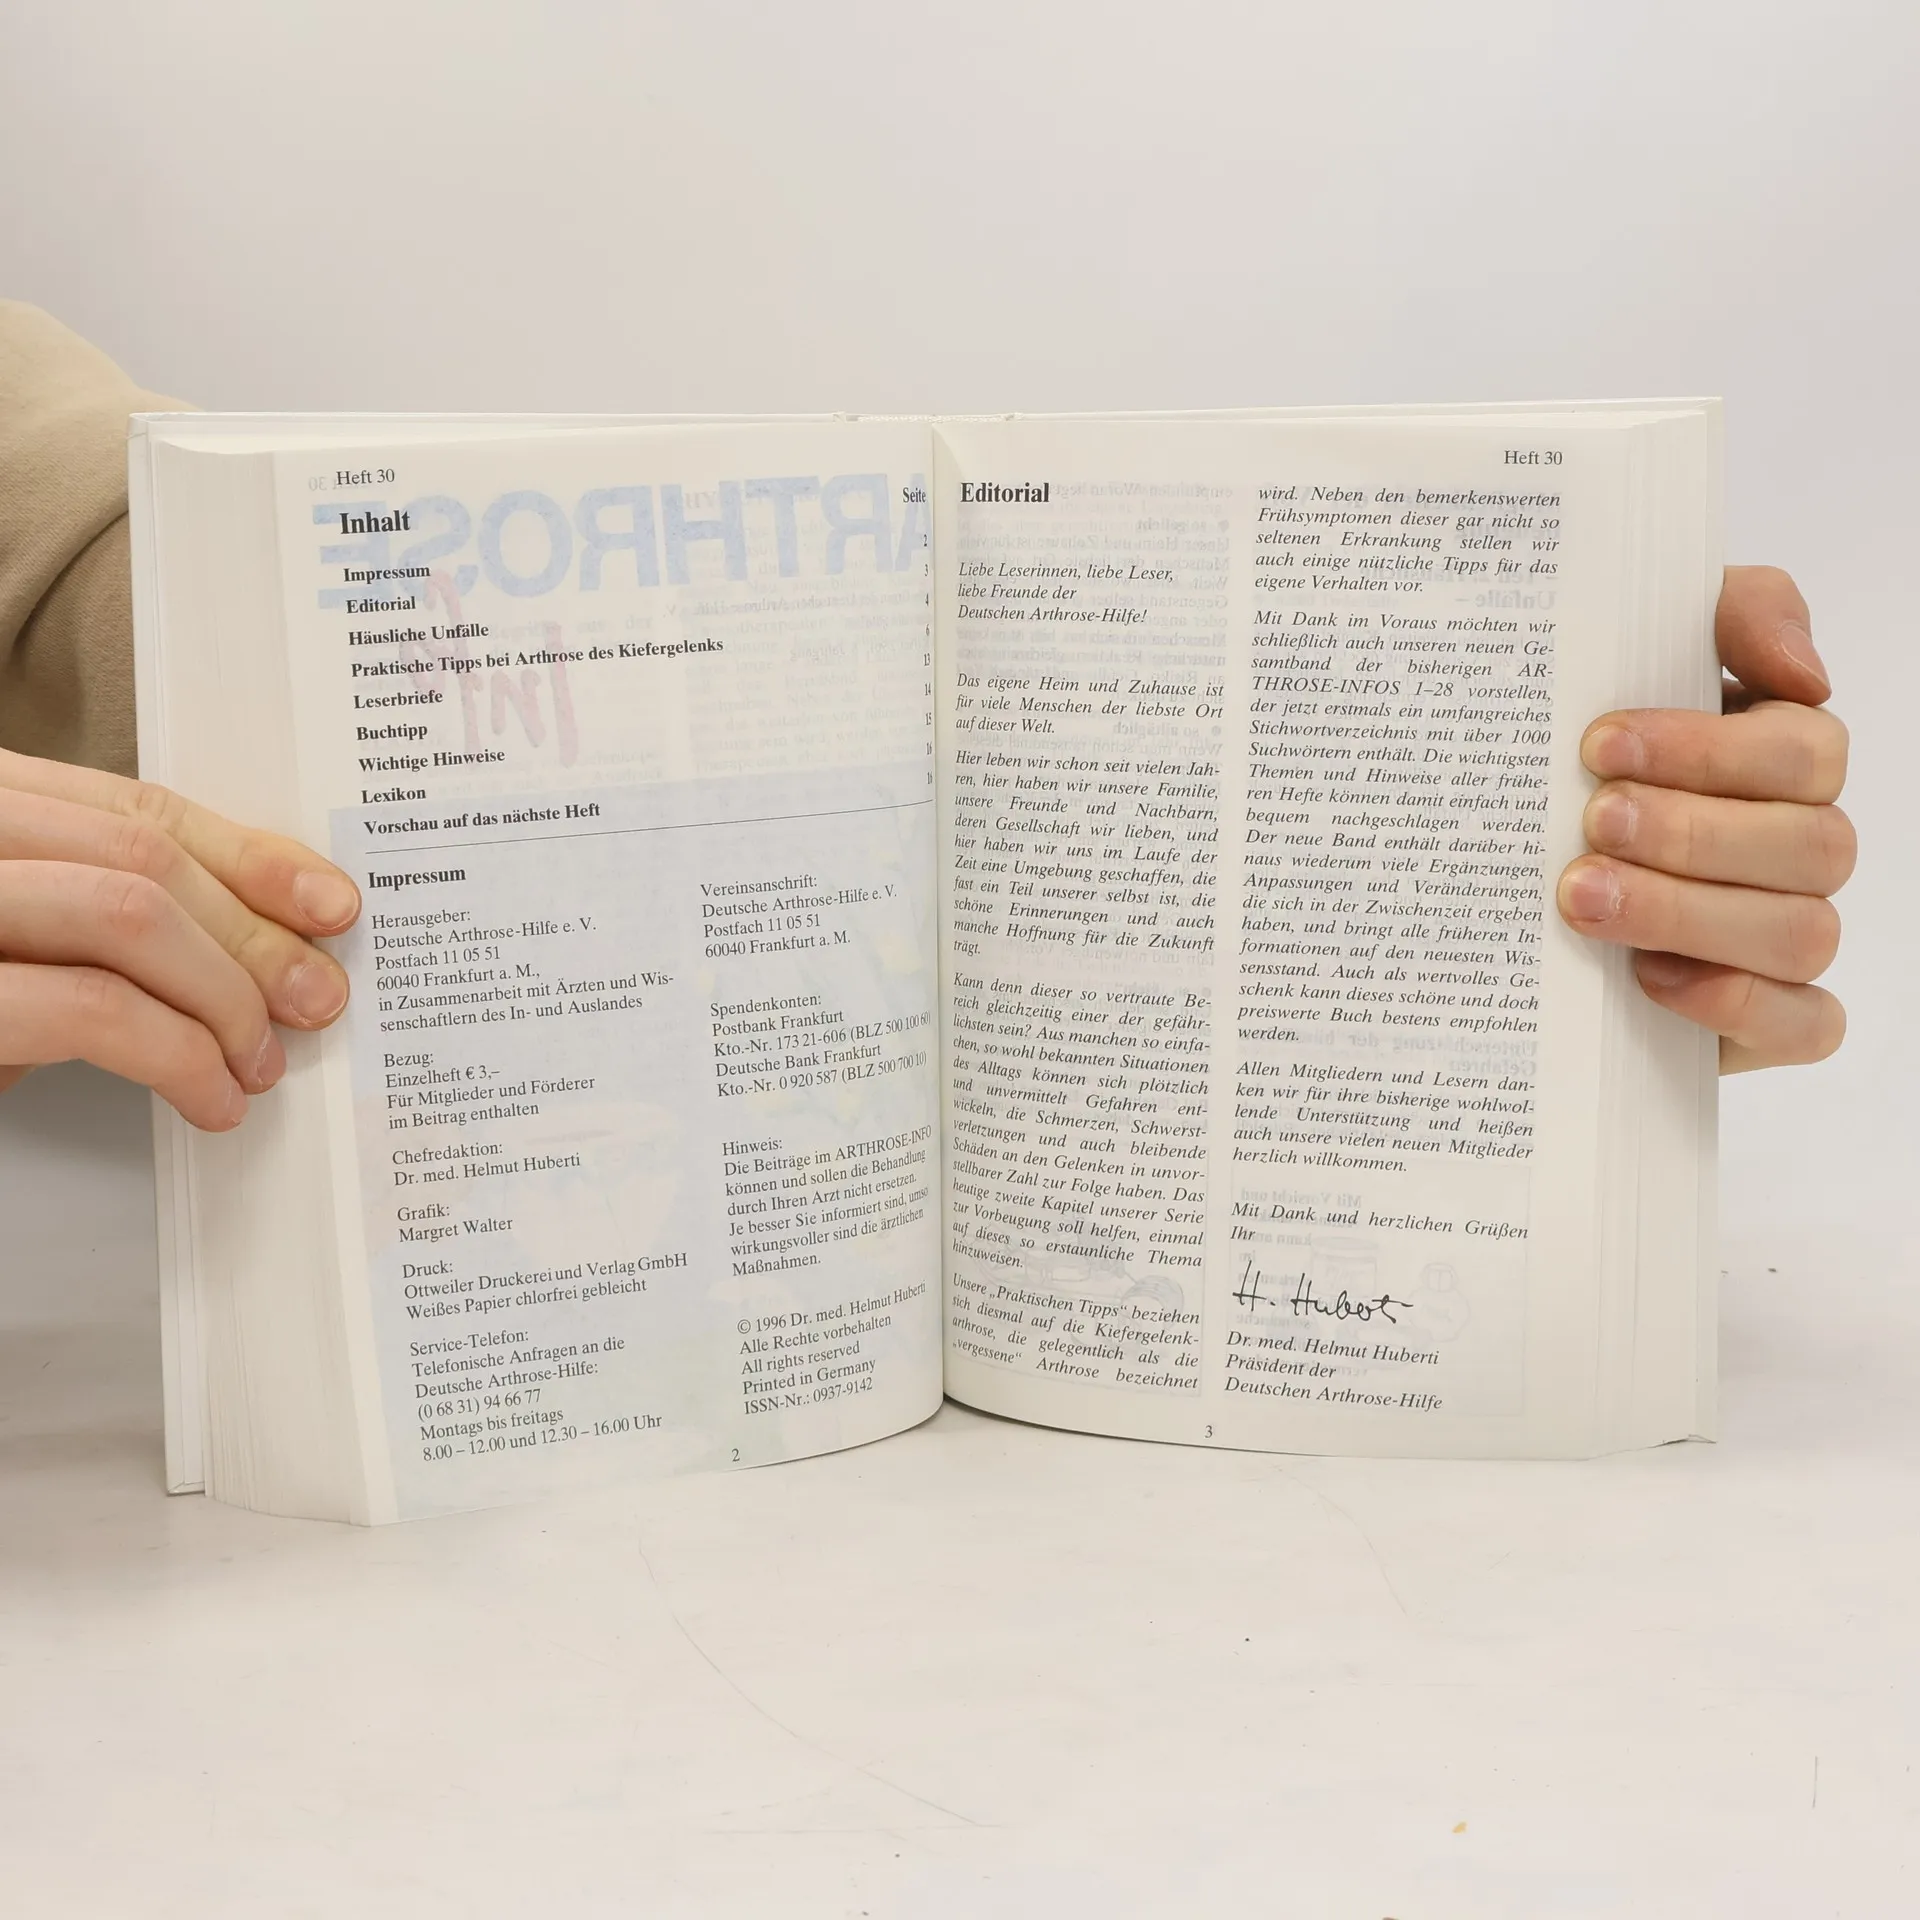 Heft 30
Inhalt
Seite
Impressum 2
Editorial 3
Häusliche Unfälle 4
Praktische Tipps bei Arthrose des Kiefergelenks 6
Leserbriefe 13
Buchtipp 14
Wichtige Hinweise 15
Lexikon 16
Vorschau auf das nächste Heft 16
Impressum
Herausgeber:
Deutsche Arthrose-Hilfe e. V.
Postfach 11 05 51
60040 Frankfurt a. M.,
in Zusammenarbeit mit Ärzten und Wis-
senschaftlern des In- und Auslandes
Bezug:
Einzelheft € 3,–
Für Mitglieder und Förderer
im Beitrag enthalten
Chefredaktion:
Dr. med. Helmut Huberti
Grafik:
Margret Walter
Druck:
Ottweiler Druckerei und Verlag GmbH
Weißes Papier chlorfrei gebleicht
Service-Telefon:
Telefonische Anfragen an die
Deutsche Arthrose-Hilfe:
(0 68 31) 94 66 77
Montags bis freitags
8.00 – 12.00 und 12.30 – 16.00 Uhr
Vereinsanschrift:
Deutsche Arthrose-Hilfe e. V.
Postfach 11 05 51
60040 Frankfurt a. M.
Spendenkonten:
Postbank Frankfurt
Kto.-Nr. 173 21-606 (BLZ 500 100 60)
Deutsche Bank Frankfurt
Kto.-Nr. 0 920 587 (BLZ 500 700 10)
Hinweis:
Die Beiträge im ARTHROSE-INFO
können und sollen die Behandlung
durch Ihren Arzt nicht ersetzen.
Je besser Sie informiert sind, umso
wirkungsvoller sind die ärztlichen
Maßnahmen.
© 1996 Dr. med. Helmut Huberti
Alle Rechte vorbehalten
All rights reserved
Printed in Germany
ISSN-Nr.: 0937-9142
2
Heft 30
Editorial
Liebe Leserinnen, liebe Leser,
liebe Freunde der
Deutschen Arthrose-Hilfe!
Das eigene Heim und Zuhause ist
für viele Menschen der liebste Ort
auf dieser Welt.
Hier leben wir schon seit vielen Jah-
ren, hier haben wir unsere Familie,
unsere Freunde und Nachbarn,
deren Gesellschaft wir lieben, und
hier haben wir uns im Laufe der
Zeit eine Umgebung geschaffen, die
fast ein Teil unserer selbst ist, die
schöne Erinnerungen und auch
manche Hoffnung für die Zukunft
trägt.
Kann denn dieser so vertraute Be-
reich gleichzeitig einer der gefähr-
lichsten sein? Aus manchen so einfa-
chen, so wohl bekannten Situationen
des Alltags können sich plötzlich
und unvermittelt Gefahren ent-
wickeln, die Schmerzen, Schwerst-
verletzungen und auch bleibende
Schäden an den Gelenken in unvor-
stellbarer Zahl zur Folge haben. Das
heutige zweite Kapitel unserer Serie
zur Vorbeugung soll helfen, einmal
auf dieses so erstaunliche Thema
hinzuweisen.
Unsere „Praktischen Tipps“ beziehen
sich diesmal auf die Kiefergelenk-
arthrose, die gelegentlich als die
„vergessene“ Arthrose bezeichnet
wird. Neben den bemerkenswerten
Frühsymptomen dieser gar nicht so
seltenen Erkrankung stellen wir
auch einige nützliche Tipps für das
eigene Verhalten vor.
Mit Dank im Voraus möchten wir
schließlich auch unseren neuen Ge-
samtband der bisherigen AR-
THROSE-INFOS 1–28 vorstellen,
der jetzt erstmals ein umfangreiches
Stichwortverzeichnis mit über 1000
Suchwörtern enthält. Die wichtigsten
Themen und Hinweise aller frühe-
ren Hefte können damit einfach und
bequem nachgeschlagen werden.
Der neue Band enthält darüber hi-
naus wiederum viele Ergänzungen,
Anpassungen und Veränderungen,
die sich in der Zwischenzeit ergeben
haben, und bringt alle früheren In-
formationen auf den neuesten Wis-
sensstand. Auch als wertvolles Ge-
schenk kann dieses schöne und doch
preiswerte Buch bestens empfohlen
werden.
Allen Mitgliedern und Lesern dan-
ken wir für ihre bisherige wohlwol-
lende Unterstützung und heißen
auch unsere vielen neuen Mitglieder
herzlich willkommen.
Mit Dank und herzlichen Grüßen
Ihr
H. Huberti
Dr. med. Helmut Huberti
Präsident der
Deutschen Arthrose-Hilfe
3